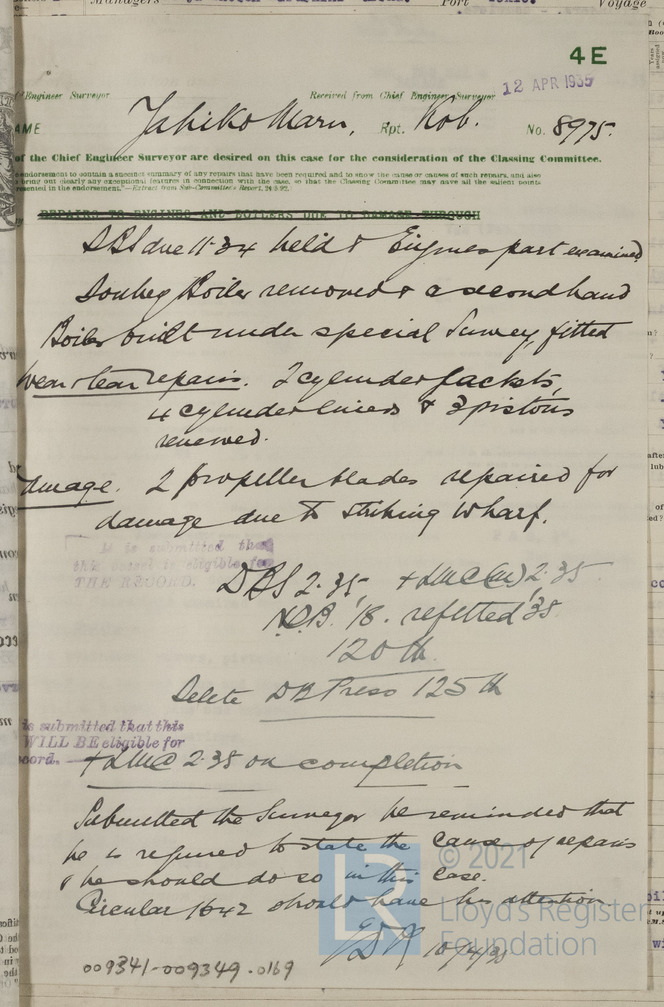 Managers
Port
Voyage
4E
Engineer Surveyor
Received from Chief Engineer Surveyor
12 APR 1935
AME Yahiko Maru, Rpt. Kob. No. 8975.
of the Chief Engineer Surveyor are desired on this case for the consideration of the Classing Committee.
endorsement to contain a succinct summary of any repairs that have been required and to show the cause or causes of such repairs, and also
bring out clearly any exceptional features in connection with the case, so that the Classing Committee may have all the salient points
presented in the endorsement."—Extract from Sub-Committee's Report,
REPAIRS TO ENGINES AND BOILERS DUE TO DAMAGE THROUGH
DBS due 11.34 held & Engines part examined
Donkey Boiler removed & a secondhand
Boiler built under special Survey, fitted
Wear & tear repairs. 2 cylinder jackets,
4 cylinder liners & 3 pistons
renewed.
Damage. 2 propeller blades repaired for
damage due to striking wharf.
It is submitted that
this vessel is eligible for
THE RECORD.
DBS 2.35, +LMC 2.35
NDB. '18. refitted '35
120 lb.
Delete DB Press 125 lb
is submitted that this
WILL BE eligible for
+LMC 2.35 on completion
Submitted the Surveyor be reminded that
he is required to state the cause of repairs
& he should do so in this case.
Circular 1642 should have his attention
10/4/35
© 2021
LR
Lloyd's Register
Foundation
009341-009349-0169